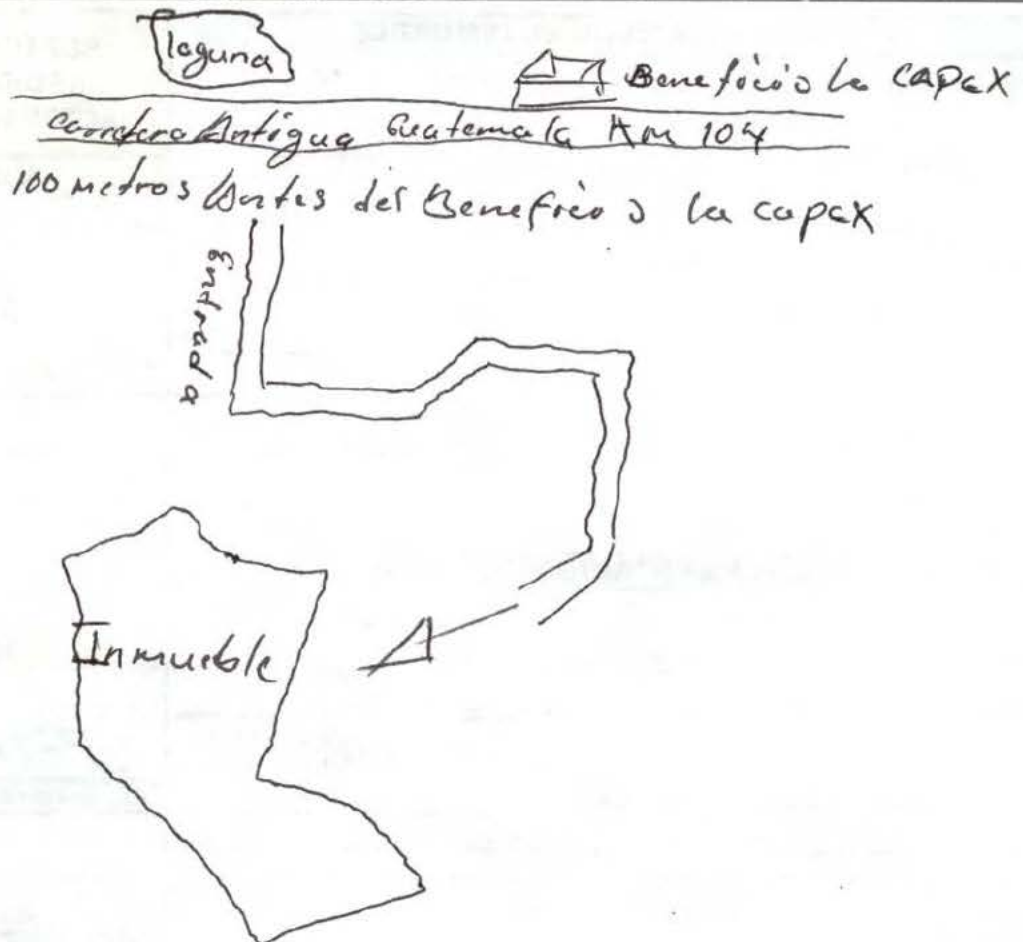 laguna
Beneficio la CAPaX
Carretera Antigua Guatemala Km 104
100 metros Antes del Beneficio la capaX
Entrada
Inmueble